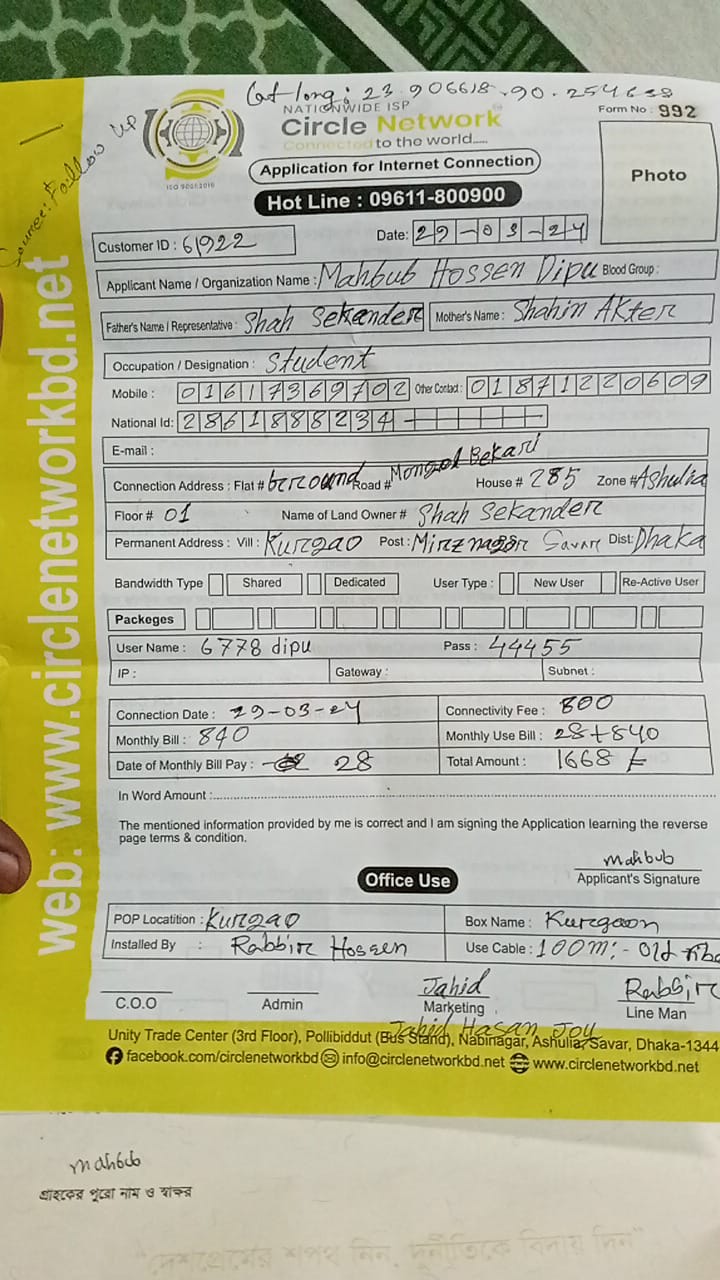 Lat long: 23.906618, 90.254638
NATIONWIDE ISP
Form No : 992
Circle Network
Connected to the world.....
ISO 9001:2015
Source: Follow Up
Application for Internet Connection
Photo
Hot Line : 09611-800900
Customer ID : 61922
Date: 29-03-24
Applicant Name / Organization Name : Mahbub Hossen Dipu Blood Group :
Father's Name / Representative : Shah Sekander Mother's Name : Shahin Akter
Occupation / Designation : Student
Mobile : 01617369702 Other Contact : 01871220609
National Id: 2861888234
E-mail :
Connection Address : Flat # Road # Mongol Bekari House # 285 Zone # Ashulia
Floor # 01 Name of Land Owner # Shah Sekander
Permanent Address : Vill : Kurgao Post : Mirznagor Savar Dist: Dhaka
Bandwidth Type Shared Dedicated User Type : New User Re-Active User
Packeges
User Name : 6778 dipu Pass : 44455
IP : Gateway : Subnet :
Connection Date : 29-03-24 Connectivity Fee : 800
Monthly Bill : 840 Monthly Use Bill : 28+840
Date of Monthly Bill Pay : 28 Total Amount : 1668/=
In Word Amount :
The mentioned information provided by me is correct and I am signing the Application learning the reverse
page terms & condition.
mahbub
Applicant's Signature
Office Use
POP Locatition : Kurgao Box Name : Kurgaon
Installed By : Rabbir Hossen Use Cable : 100m:- Old
Jahid Rabbir
C.O.O Admin Marketing Line Man
Jahid Hasan Joy
Unity Trade Center (3rd Floor), Pollibiddut (Bus Stand), Nabinagar, Ashulia, Savar, Dhaka-1344
facebook.com/circlenetworkbd info@circlenetworkbd.net www.circlenetworkbd.net
web: www.circlenetworkbd.net
mahbub
গ্রাহকের পুরো নাম ও স্বাক্ষর
"দেশপ্রেমের শপথ নিন, দুর্নীতিকে বিদায় দিন"